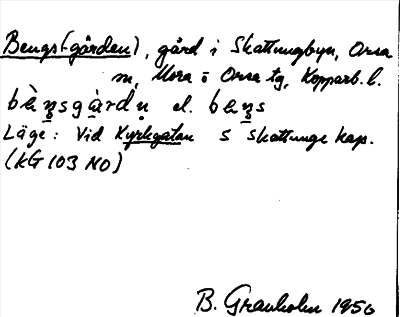 Bengs(-gården), gård i Skattungbyn, Orsa
m, Mora o Orsa tg, Kopparb. l.
bèŋsgàrdn el. beŋs
Läge: Vid Kyrkgatan S Skattunge kap.
(KG 103 NO)
B. Granholm 1950